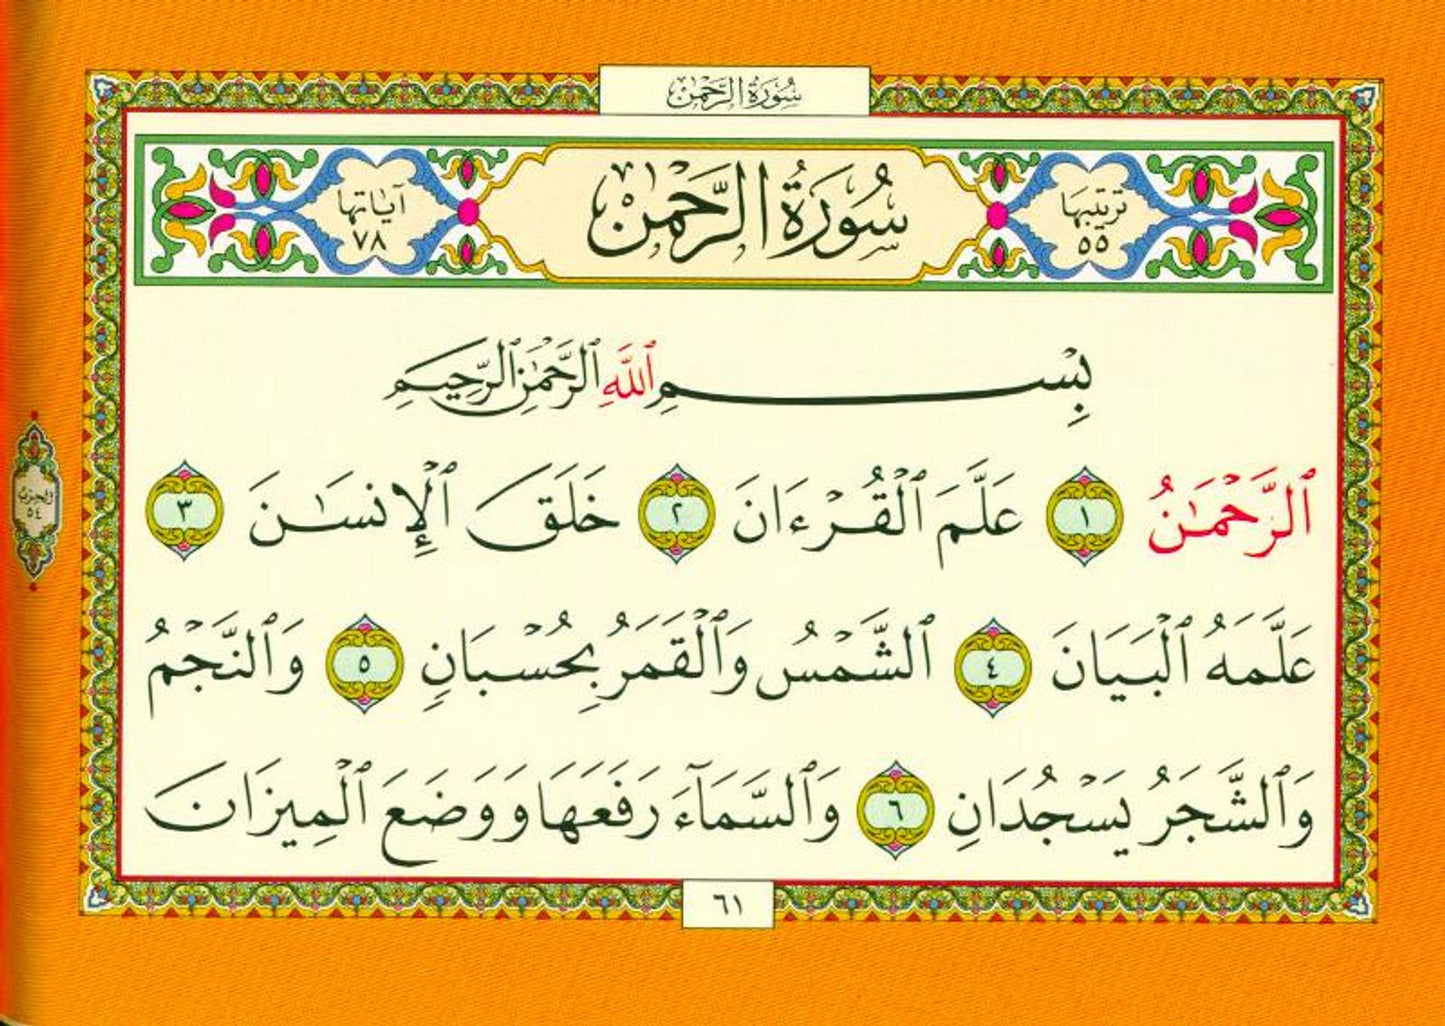 سُورَةُ الرَّحْمٰن
ترتيبها
٥٥
سُورَةُ الرَّحْمٰن
آياتها
٧٨
بِسْمِ ٱللَّهِ ٱلرَّحْمَٰنِ ٱلرَّحِيمِ
ٱلرَّحْمَٰنُ ١ عَلَّمَ ٱلْقُرْءَانَ ٢ خَلَقَ ٱلْإِنسَٰنَ ٣
عَلَّمَهُ ٱلْبَيَانَ ٤ ٱلشَّمْسُ وَٱلْقَمَرُ بِحُسْبَانٍ ٥ وَٱلنَّجْمُ
وَٱلشَّجَرُ يَسْجُدَانِ ٦ وَٱلسَّمَآءَ رَفَعَهَا وَوَضَعَ ٱلْمِيزَانَ
٦١
الحزب
٥٤